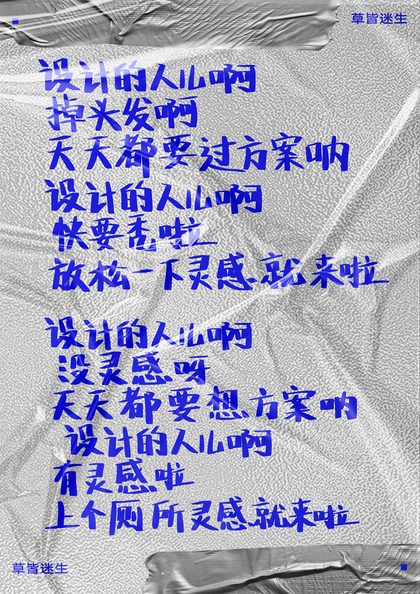 草皆迷生
设计的人儿啊
掉头发啊
天天都要过方案呐
设计的人儿啊
快要秃啦
放松一下灵感就来啦
设计的人儿啊
没灵感呀
天天都要想方案呐
设计的人儿啊
有灵感啦
上个厕所灵感就来啦
草皆迷生